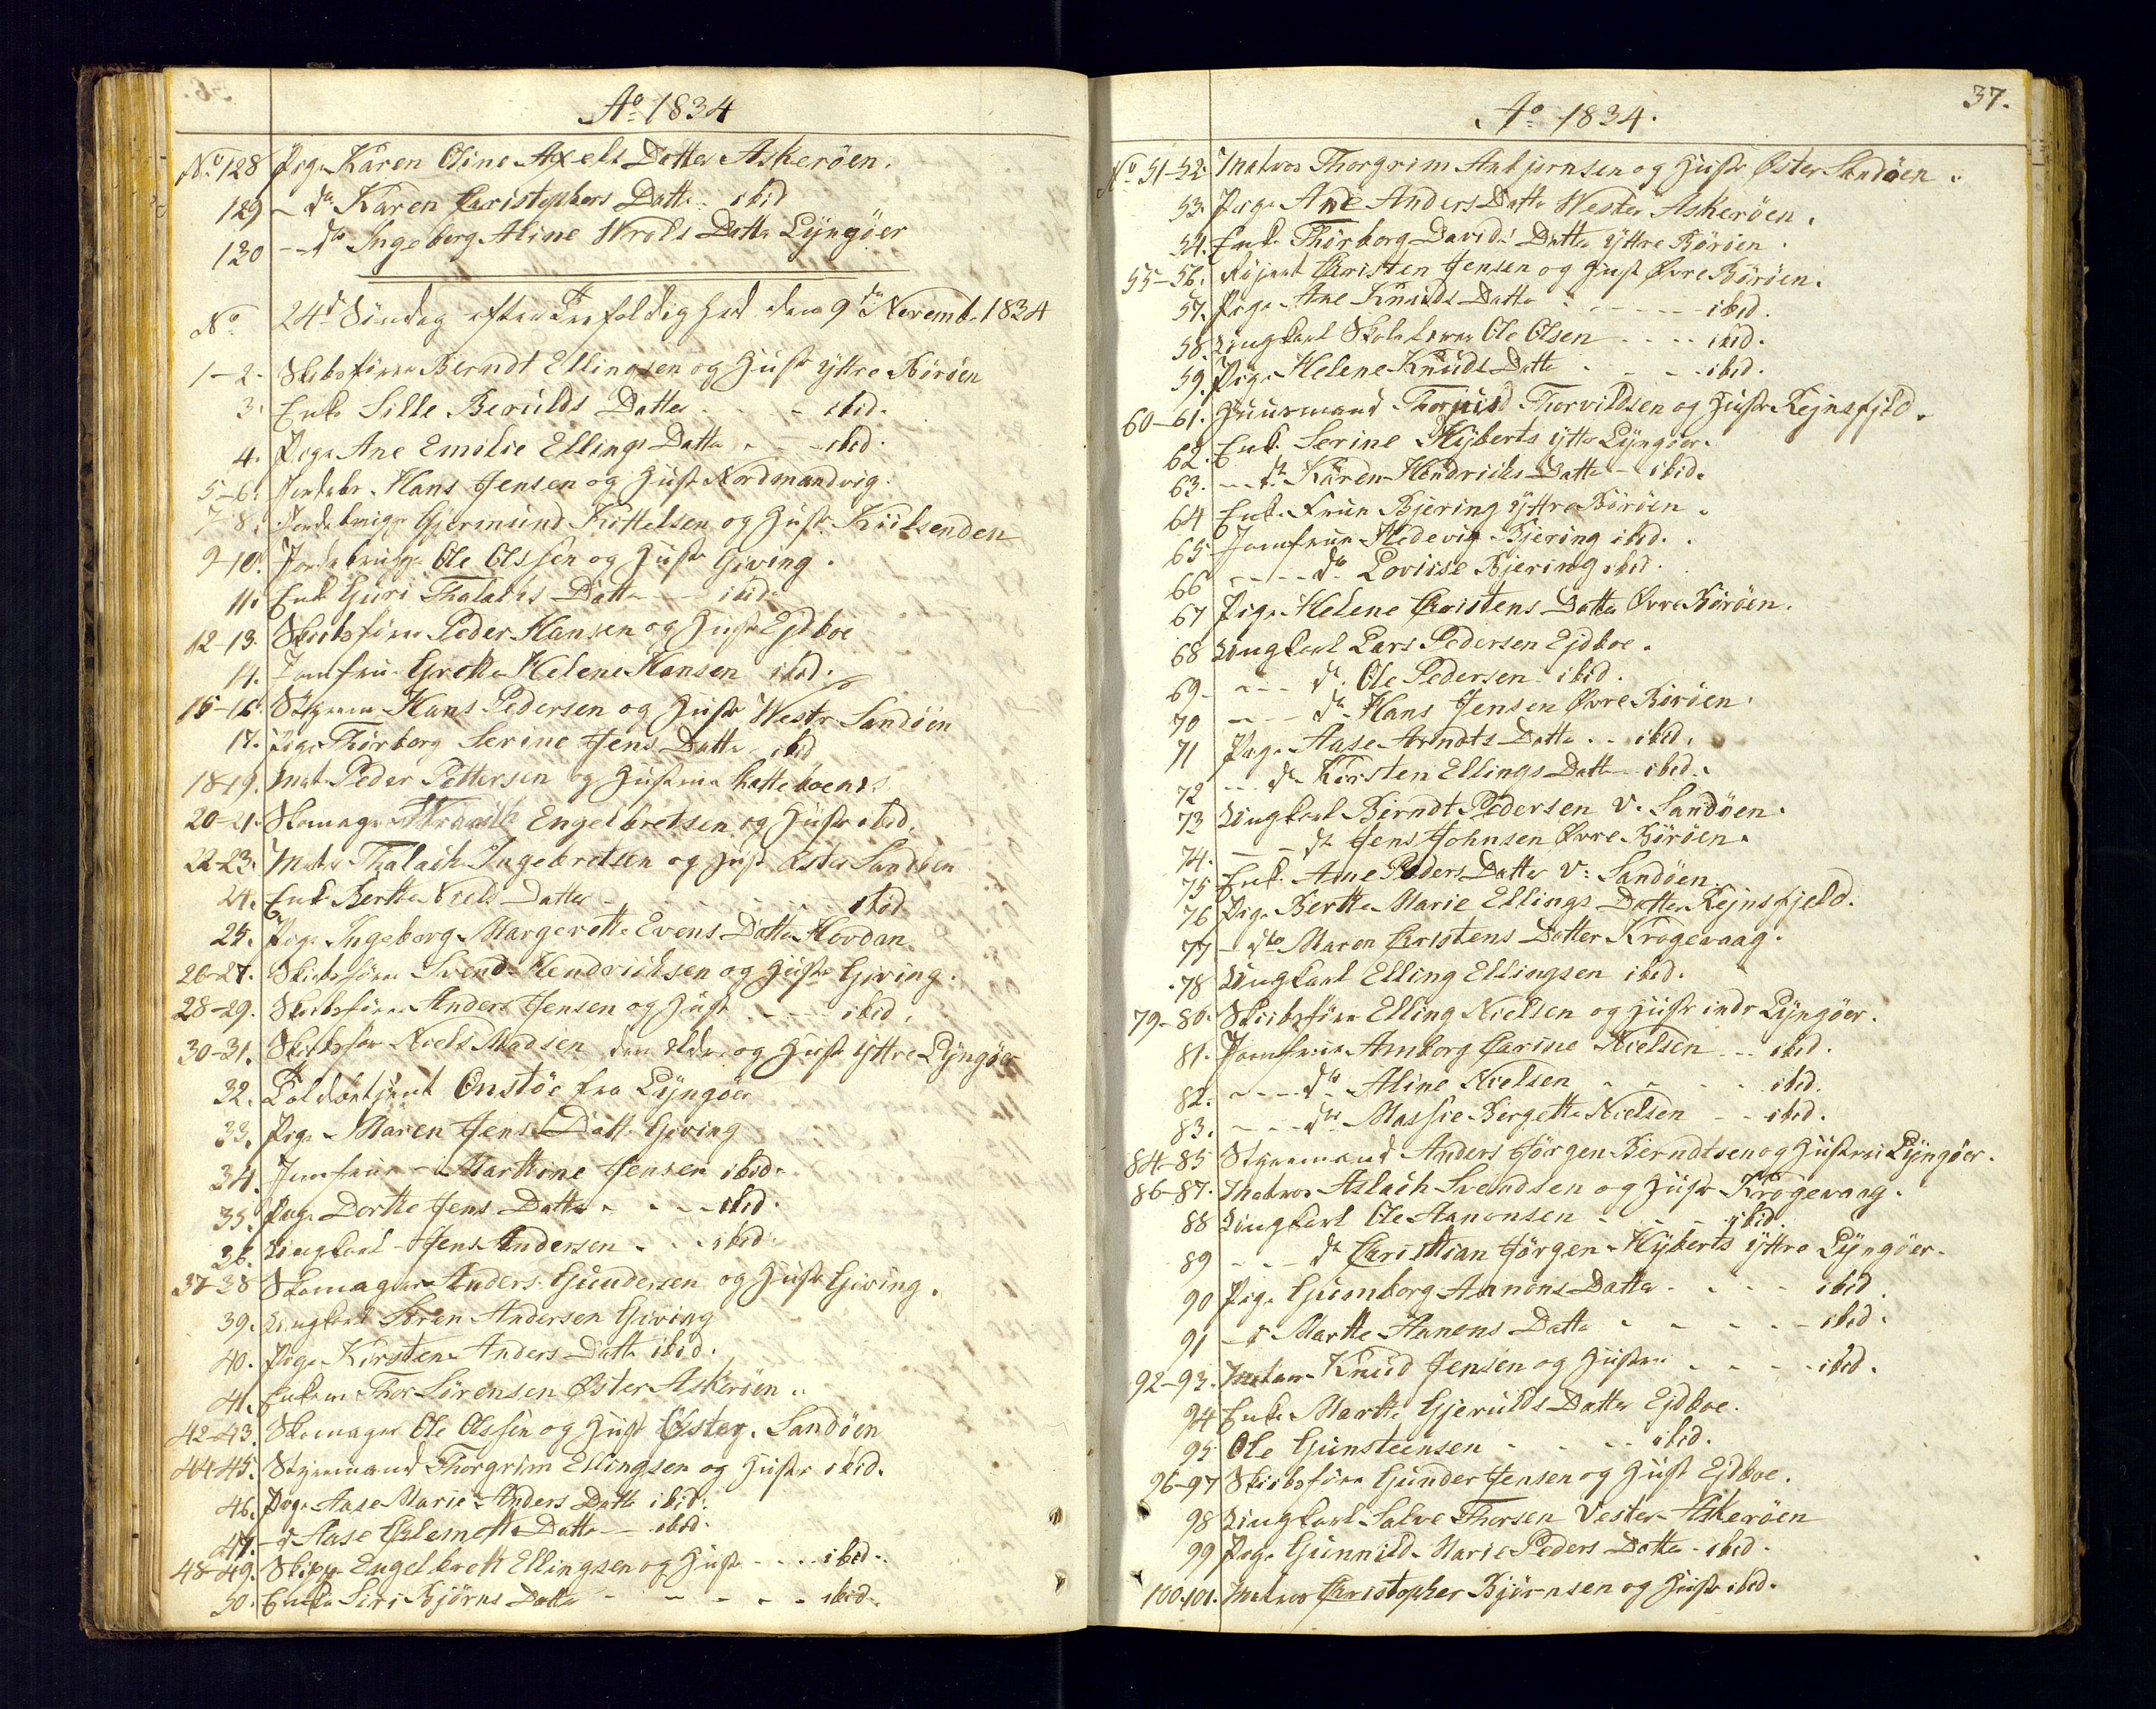 Ao 1834
No 128 Pige Karen Oline Axels Datter Askerøen.
129 - do Karen Christophers Datter ibid
130 - do Ingeborg Aline Wrols Datter Lyngøer
No 24de Söndag efter Trefoldighed den 9de Novemb. 1834
1-2. Skibsfører Berndt Ellingsen og Hustr yttre Börøen
3. Enke Sille Berulds Datter - ibid.
4. Pige Ane Emilie Ellings Datter - ibid.
5-6. Hans Jensen og Hust Nordmandvig.
7-8. Jordbruger Gjermund Kittelsen og Hustr
9-10. Jordbruger Ole Olssen og Hustr Giving.
11. Enke Guri Thalachs Datter - ibid.
12-13. Skibsfører Peder Hansen og Hustr Ejdboe
14. Jomfru Grethe Helene Hansen ibid.
15-16. Styrm Hans Pedersen og Hustr Westr Sandøen
17. Pige Thorborg Serine Jens Datter ibid
18-19. Mat. Peder Pettersen og Hustrue Hatteboen
20-21. Skomager Engelbretsen og Hustr ibid.
22-23. Matr Thalach Ingebretsen og Hust Øster Sandøen
24. Enke Berthe Niels Datter - - - ibid
25. Pige Ingeborg Margerethe Evens Datter Hovdan.
26-27. Skibsfører Svend Hendrichsen og Hustr Giving.
28-29. Skibsfører Anders Jensen og Hust - - - ibid.
30-31. Skibsfør Niels Madsen den eldre og Hust yttre Lyngøer
32. Toldbetjent Onstöe fra Lyngøer
33. Pige Maren Jens Datter Giving
34. Jomfrue Marthine Jensen ibid.
35. Pige Dorthe Jens Datter - - - ibid.
36. Ungkarl Jens Andersen - - ibid.
37-38 Skomager Anders Gundersen og Hustr Giving.
39. Ungkarl Sören Andersen Giving
40. Pige Kirsten Anders Datter ibid.
41. Enkem Thor Sörensen Øster Askerøen.
42-43. Skomager Ole Olssen og Hust Øster Sandøen
44-45. Styrmand Thorgrim Ellingsen og Hustr ibid.
46. Pige Aase Marie Anders Datter ibid.
47. - d Aase Datter - ibid.
48-49. Skipp Engelbrett Ellingsen og Hustr - - - ibid.
50. Enke Siri Björns Datter - - - - ibid.
37.
Ao 1834.
No 51-52. Matros Thorgrim Anbjørnsen og Hustr Øster Sandøen.
53. Pige Ane Anders Datter Wester Askerøen.
54. Enke Thorborg Davids Datter yttre Börøen.
55-56. Christen Jensen og Hust Øvre Börøen.
57. Pige Ane Knuds Datter - - - - ibid.
58. Ungkarl Skolelærer Ole Olsen - - - - ibid.
59. Pige Helene Knuds Datter - - - ibid.
60-61. Huusmand Thorvildsen og Hustr Rejnsfjeld.
62. Enke Serine Hyberts yttre Lyngøer.
63. - d. Karen Hendrichs Datter - ibid.
64 Enke Frue Bjering yttre Börøen.
65 Jomfrue Hedevig Bjering ibid.
66 - - - do Lovise Bjering ibid.
67 Pige Helene Christens Datter Øvre Börøen.
68 Ungkarl Lars Pedersen Ejdboe.
69 - - - do Ole Pedersen ibid.
70 - - - do Hans Jensen Øvre Börøen.
71 Pige Aase Arndts Datter - - ibid.
72 - - do Kirsten Ellings Datter - ibid.
73 Ungkarl Berndt Pedersen V. Sandøen.
74. - - do Jens Johnsen Øvre Börøen.
75 Enke Ane Peders Datter V: Sandøen.
76 Pige Berthe Marie Ellings Datter Rejnsfjeld.
77 - dto Maren Christens Datter Krogevaag.
78 Ungkarl Elling Ellingsen ibid.
79-80. Skibsfører Elling Nielsen og Hustr indr Lyngøer.
81. Jomfrue Amborg Carine Nielsen - - ibid.
82. - - - do Aline Nielsen - - - - ibid.
83. - - - do Massie Birgette Nielsen - - ibid.
84-85 Styrmand Anders Jörgen Berndtsen og Hustrue Lyngøer.
86-87. Matros Aslach Svendsen og Hustr Krogevaag.
88 Ungkarl Ole Aanonsen - - - - ibid.
89 - - - do Christian Jörgen Hyberts yttre Lyngøer.
90 Pige Gunborg Aanons Datter - - - ibid
91 - d Marthe Aanons Datter - - - - ibid.
92-93. Matros Knud Jensen og Hustrue - - - - ibid.
94 Enke Marthe Gjerulds Datter Ejdboe.
95 Ole Gunsteensen - - - - ibid.
96-97 Skibsfører Gunder Jensen og Hust Ejdboe.
98 Ungkarl Salve Thorsen Vester Askerøen
99 Pige Gunnild Marie Peders Datter - ibid.
100-101. Matros Christopher Bjørnsen og Hustr ibid.